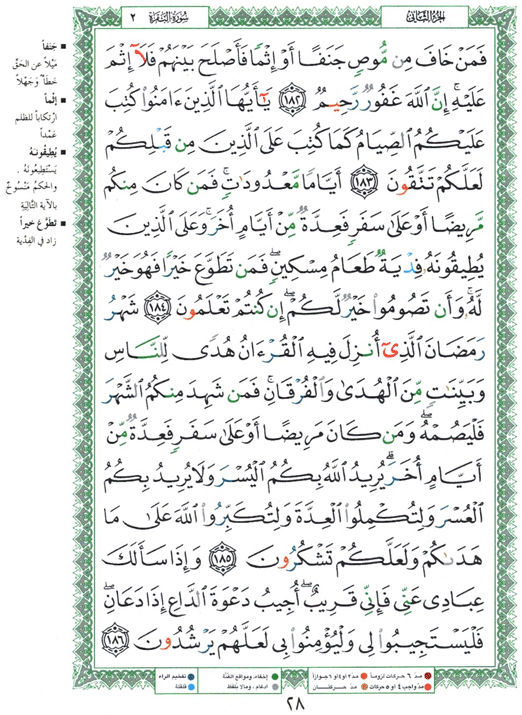 الجزء الثاني
سورة البقرة ٢
فَمَنْ خَافَ مِن مُّوصٍ جَنَفًا أَوْ إِثْمًا فَأَصْلَحَ بَيْنَهُمْ فَلَآ إِثْمَ
عَلَيْهِ ۚ إِنَّ ٱللَّهَ غَفُورٌ رَّحِيمٌ ١٨٢ يَٰٓأَيُّهَا ٱلَّذِينَ ءَامَنُوا۟ كُتِبَ
عَلَيْكُمُ ٱلصِّيَامُ كَمَا كُتِبَ عَلَى ٱلَّذِينَ مِن قَبْلِكُمْ
لَعَلَّكُمْ تَتَّقُونَ ١٨٣ أَيَّامًا مَّعْدُودَٰتٍ ۚ فَمَن كَانَ مِنكُم
مَّرِيضًا أَوْ عَلَىٰ سَفَرٍ فَعِدَّةٌ مِّنْ أَيَّامٍ أُخَرَ ۚ وَعَلَى ٱلَّذِينَ
يُطِيقُونَهُۥ فِدْيَةٌ طَعَامُ مِسْكِينٍ ۖ فَمَن تَطَوَّعَ خَيْرًا فَهُوَ خَيْرٌ
لَّهُۥ ۚ وَأَن تَصُومُوا۟ خَيْرٌ لَّكُمْ ۖ إِن كُنتُمْ تَعْلَمُونَ ١٨٤ شَهْرُ
رَمَضَانَ ٱلَّذِىٓ أُنزِلَ فِيهِ ٱلْقُرْءَانُ هُدًى لِّلنَّاسِ
وَبَيِّنَٰتٍ مِّنَ ٱلْهُدَىٰ وَٱلْفُرْقَانِ ۚ فَمَن شَهِدَ مِنكُمُ ٱلشَّهْرَ
فَلْيَصُمْهُ ۖ وَمَن كَانَ مَرِيضًا أَوْ عَلَىٰ سَفَرٍ فَعِدَّةٌ مِّنْ
أَيَّامٍ أُخَرَ ۗ يُرِيدُ ٱللَّهُ بِكُمُ ٱلْيُسْرَ وَلَا يُرِيدُ بِكُمُ
ٱلْعُسْرَ وَلِتُكْمِلُوا۟ ٱلْعِدَّةَ وَلِتُكَبِّرُوا۟ ٱللَّهَ عَلَىٰ مَا
هَدَىٰكُمْ وَلَعَلَّكُمْ تَشْكُرُونَ ١٨٥ وَإِذَا سَأَلَكَ
عِبَادِى عَنِّى فَإِنِّى قَرِيبٌ ۖ أُجِيبُ دَعْوَةَ ٱلدَّاعِ إِذَا دَعَانِ ۖ
فَلْيَسْتَجِيبُوا۟ لِى وَلْيُؤْمِنُوا۟ بِى لَعَلَّهُمْ يَرْشُدُونَ ١٨٦
جَنَفاً
مَيْلاً عن الحَقِّ
خطأً وَجَهْلاً
إثماً
ارْتِكاباً للظلم
عَمْداً
يُطِيقُونَهُ
يَسْتَطِيعُونَهُ .
والحكمُ مَنْسُوخٌ
بالآية التَّالِيَةِ
تَطَوَّعَ خيراً
زاد في الفِدْية
مدّ ٦ حركات لزوماً
مدّ ٢ أو ٤ أو ٦ جوازاً
إخفاء، ومواقع الغُنَّة
تفخيم الراء
مدّ واجب ٤ أو ٥ حركات
مدّ حركتان
إدغام ، وما لا يُلفَظ
قلقلة
٢٨